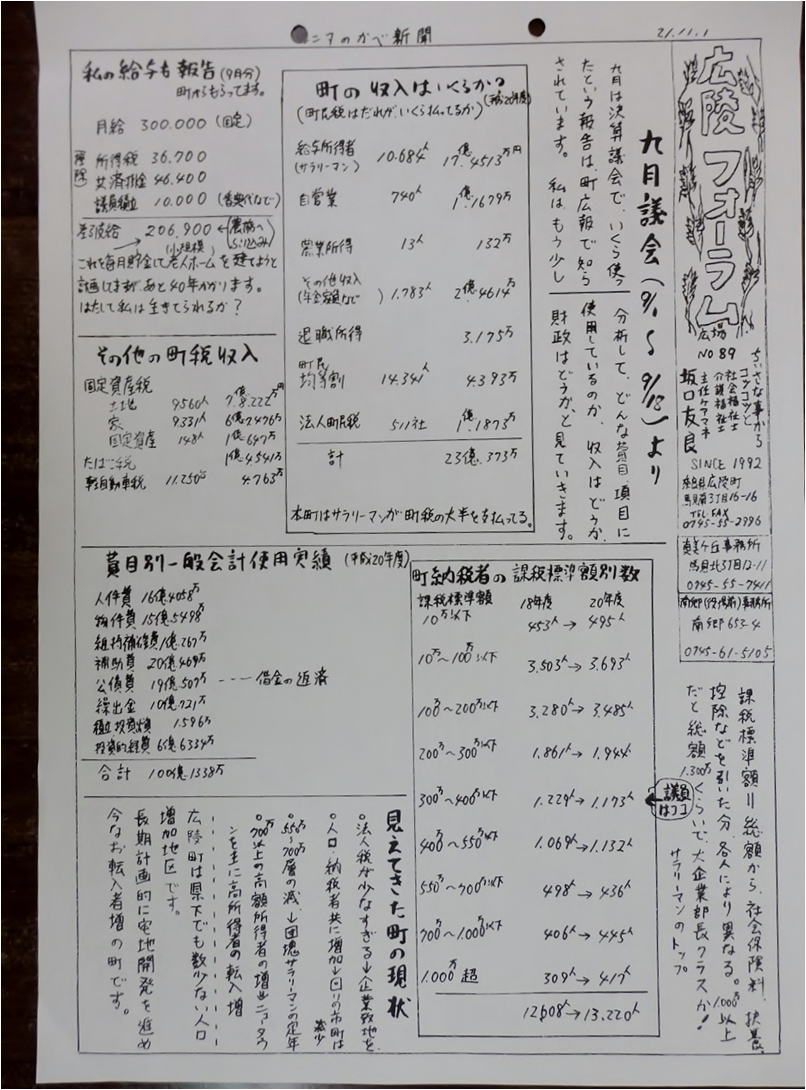 ニアのかべ新聞
21.11.1
広陵フォーラム
広場
NO 89
ちいさな事から
コツコツと
社会福祉士
介護福祉士
主任ケアマネ
坂口友良
SINCE 1992
奈良県広陵町
馬見南3丁目16-16
TEL.FAX
0745-55-2996
真美ケ丘事務所
馬見北3丁目12-11
0745-55-7411
南郷(役場前)事務所
南郷653-4
0745-61-5105
九月議会(9/1〜9/18)より
九月は決算議会で、いくら使っ
たという報告は、町広報で知ら
されています。私は、もう少し
分析して、どんな費目、項目に
使用しているのか、収入はどうか、
財政はどうか、と見ていきます。
町の収入はいくらか?
(平成20年度)
(町民税はだれが、いくら払ってるか)
給与所得者 10.684人 17億.4513万円
(サラリーマン)
自営業 740人 1億.1679万
農業所得 13人 132万
その他収入 1.783人 2億.4614万
(年金額など)
退職所得 3.175万
町民
均等割 14.341人 4.393万
法人町民税 511社 1億.1873万
計 23億.373万
本町はサラリーマンが町税の大半を支払ってる。
私の給与報告(9月分)
町からもらってます。
月給 300.000(固定)
控除
所得税 36.700
共済掛金 46.400
議員積立 10.000(香奠代など)
差引支給 206.900
(小規模)
これを毎月貯金して老人ホームを建てようと
計画してますが、あと40年かかります。
はたして私は生きてられるか?
その他の町税収入
固定資産税
土地 9560人 7億.8.222万円
家 9.331人 6億.2476万
固定資産 148人 1億.647万
たばこ税 1億.4541万
軽自動車税 11.250台 4.763万
費目別一般会計使用実績(平成20年度)
人件費 16億4058万
物件費 15億.5498万
維持補修費 1億.267万
補助費 20億.469万
公債費 19億.507万 ---- 借金の返済
繰出金 10億.721万
積立投資 1.596万
投資的経費 6億.6334万
合計 100億.1338万
町納税者の課税標準額別数
課税標準額 18年度 20年度
10万以下 453人→495人
10万〜100万以下 3.503人→3.693人
100万〜200万以下 3.280人→3.485人
200万〜300万以下 1.861人→1.944人
300万〜400万以下 1.229人→1.173人
議員はココ
400万〜550万以下 1.069人→1.132人
550万〜700万以下 498人→436人
700万〜1.000万以下 406人→445人
1.000万超 309人→417人
12608人→13.220人
課税標準額=総額から、社会保険料、扶養、
控除などを引いた分、各人により異なる。1.000万以上
だと総額1.300万くらいで、大企業部長クラスか!
サラリーマンのトップ
見えてきた町の現状
○法人税が少なすぎる→企業敷地を
○人口・納税者共に増加→回りの市町は
減少
○550万〜700万層の減→団塊サラリーマンの定年
○700万以上の高額所得者の増→ニュータウ
ンを主に高所得者の転入増
広陵町は県下でも数少ない人口
増加地区です。
長期計画的に宅地開発を進め
今なお転入者増の町です。